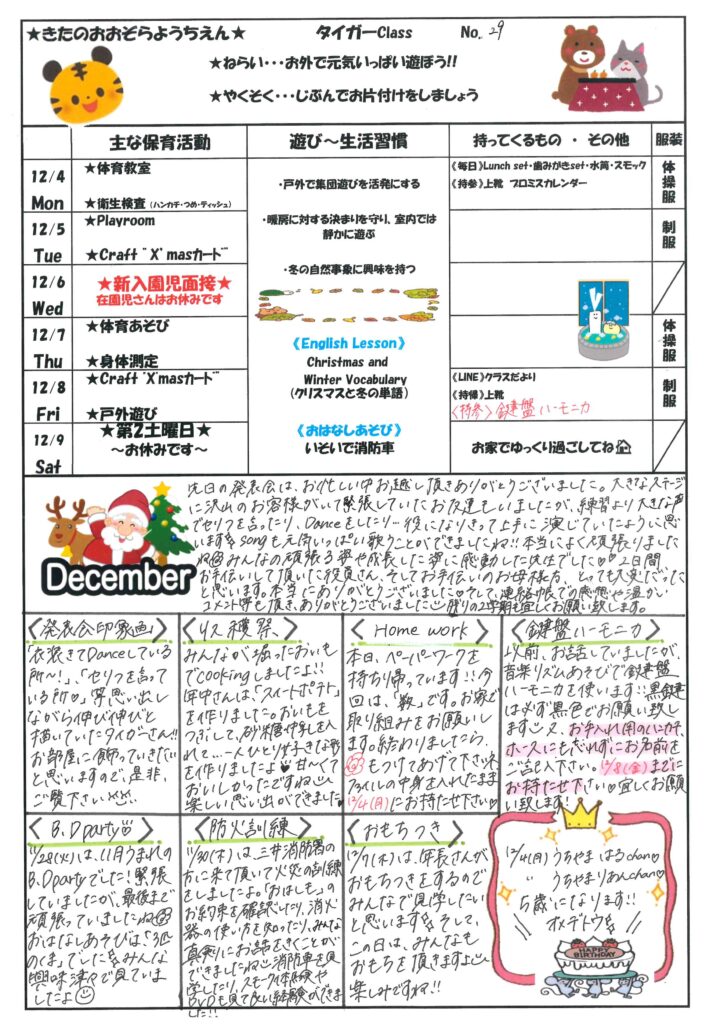 ★きたのおおぞらようちえん★　タイガーClass　No. 29
★ねらい・・・お外で元気いっぱい遊ぼう!!
★やくそく・・・じぶんでお片付けをしましょう
主な保育活動　遊び～生活習慣　持ってくるもの ・ その他　服装
12/4 Mon
★体育教室
★衛生検査（ハンカチ・つめ・ティッシュ）
《毎日》Lunch set・歯みがきset・水筒・スモック
《持参》上靴　プロミスカレンダー
体操服
12/5 Tue
★Playroom
★Craft “X’masカード”
制服
12/6 Wed
★新入園児面接★
在園児さんはお休みです
12/7 Thu
★体育あそび
★身体測定
体操服
12/8 Fri
★Craft “X’masカード”
★戸外遊び
《LINE》クラスだより
《持帰》上靴
〈持参〉鍵盤ハーモニカ
制服
12/9 Sat
★第2土曜日★
～お休みです～
お家でゆっくり過ごしてね
・戸外で集団遊びを活発にする
・暖房に対する決まりを守り、室内では
静かに遊ぶ
・冬の自然事象に興味を持つ
《English Lesson》
Christmas and
Winter Vocabulary
(クリスマスと冬の単語)
《おはなしあそび》
いそいで消防車
December
先日の発表会は、お忙しい中お越し頂きありがとうございました。大きなステージ
に沢山のお客様がいて緊張していたお友達もいましたが、練習より大きな声
でセリフを言ったり、Danceをしたり…役になりきって上手に演じていたように思
います songも元気いっぱい歌うことができましたね!!本当によく頑張りました
ね みんなの頑張る姿や成長した姿に感動した先生でした♡♡2日間
お手伝いして頂いた役員さん、そしてお手伝いのお母様方、とっても大変だった
と思います。本当にありがとうございました♡そして、連絡帳での感想や温かい
コメント等も頂き、ありがとうございました 残りの2学期も宜しくお願い致します。
〈発表会印象画〉
「衣装きてDanceしている
所～!」、「セリフを言って
いる所♡」等思い出し
ながら伸び伸びと
描いていたタイガーさん!!
お部屋に飾っていきたい
と思いますので、是非、
ご覧下さい
〈リス穫祭〉
みんなが掘ったおいも
でcookingしましたよ!!
年中さんは、「スイートポテト」
を作りました。おいもを
つぶして、砂糖、牛乳を入
れて…一人ひとり好きな形
を作りましたよ♥甘～くて
おいしかったですね
楽しい思い出ができました
〈Home work〉
本日、ペーパーワークを
持ち帰っています!!今
回は、「数」です。お家で
取り組みをお願いし
ます。終わりましたら、
もつけてあげて下さいね
ファイルの中身を入れたまま
12/4(月)にお持たせ下さい♡
〈鍵盤ハーモニカ〉
以前、お話していましたが、
音楽リズムあそびで鍵盤
ハーモニカを使います!!黒鍵
は必ず黒色でお願い致
します 又、お手入れ用のハンカチ、
ホースにも忘れずにお名前を
ご記入下さい。12/8(金)までに
お持たせ下さい♡宜しくお願
い致します!
〈B.D party〉
11/28(火)は、11月うまれの
B.D partyでした!緊張
していましたが、最後まで
頑張っていましたね
おはなしあそびは、「3匹
のくま」でした みんな
興味津々で見ていま
したよ
〈防火訓練〉
11/30(木)は、三井消防署の
方に来て頂いて火災の訓練
をしましたよ。「おはしも」の
お約束を確認したり、消火
器の使い方を知ったり、みんな
真剣にお話をきくことが
できましたね 消防車を見
学したり、スモーク体験や
DVDも見て良い経験ができま
した!!
〈おもちつき〉
12/7(木)は、年長さんが
おもちつきをするので
みんなで見学したい
と思います そして、
この日は、みんなも
おもちを頂きますよ
楽しみですね!!
12/4(月) うちやま はるchan♡
〃 うちやま りあんchan♡
5歳になります!!
オメデトウ
HAPPY BIRTHDAY